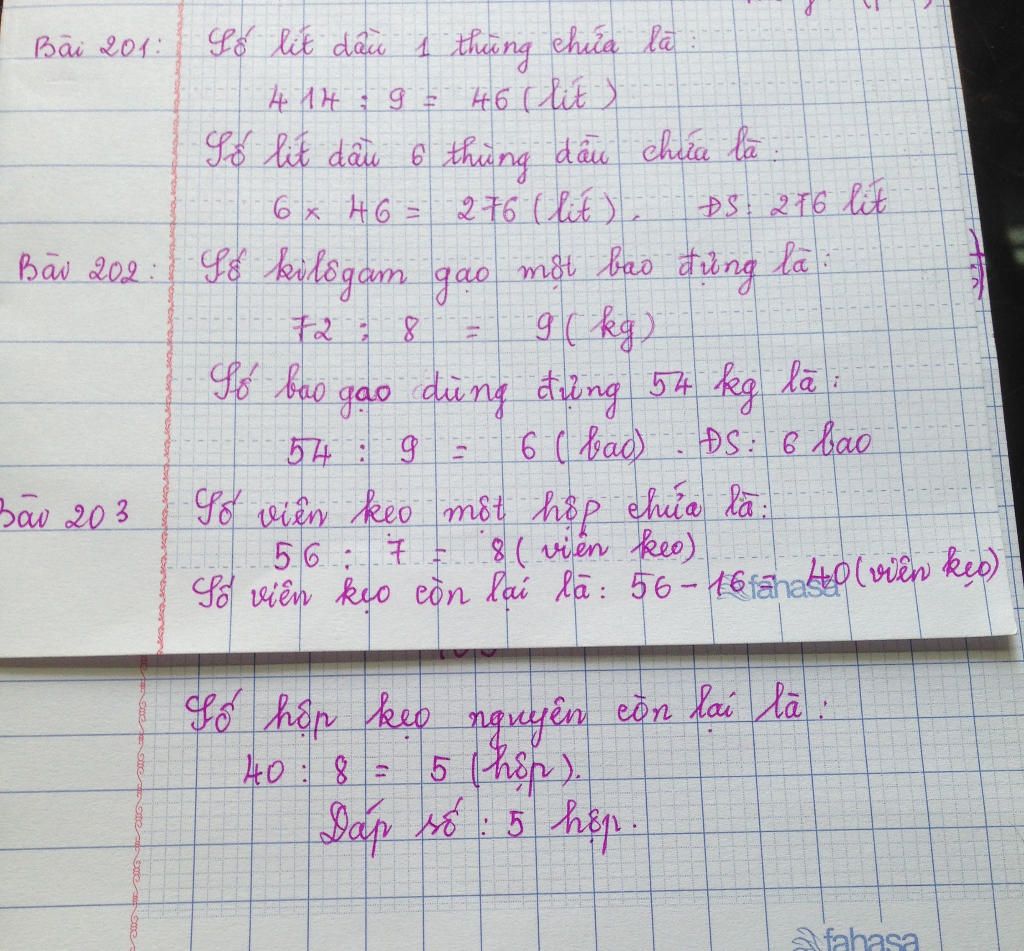 Bài 201: Số lít dầu 1 thùng chứa là:
414 : 9 = 46 (lít)
Số lít dầu 6 thùng dầu chứa là:
6 x 46 = 276 (lít). ĐS: 276 lít
Bài 202: Số kilôgam gạo một bao đựng là:
72 : 8 = 9 (kg)
Số bao gạo dùng đựng 54 kg là:
54 : 9 = 6 (bao). ĐS: 6 bao
Bài 203 Số viên kẹo một hộp chứa là:
56 : 7 = 8 (viên kẹo)
Số viên kẹo còn lại là: 56 - 16 = 40 (viên kẹo)
fahasa
Số hộp kẹo nguyên còn lại là:
40 : 8 = 5 (hộp).
Đáp số : 5 hộp.
fahasa